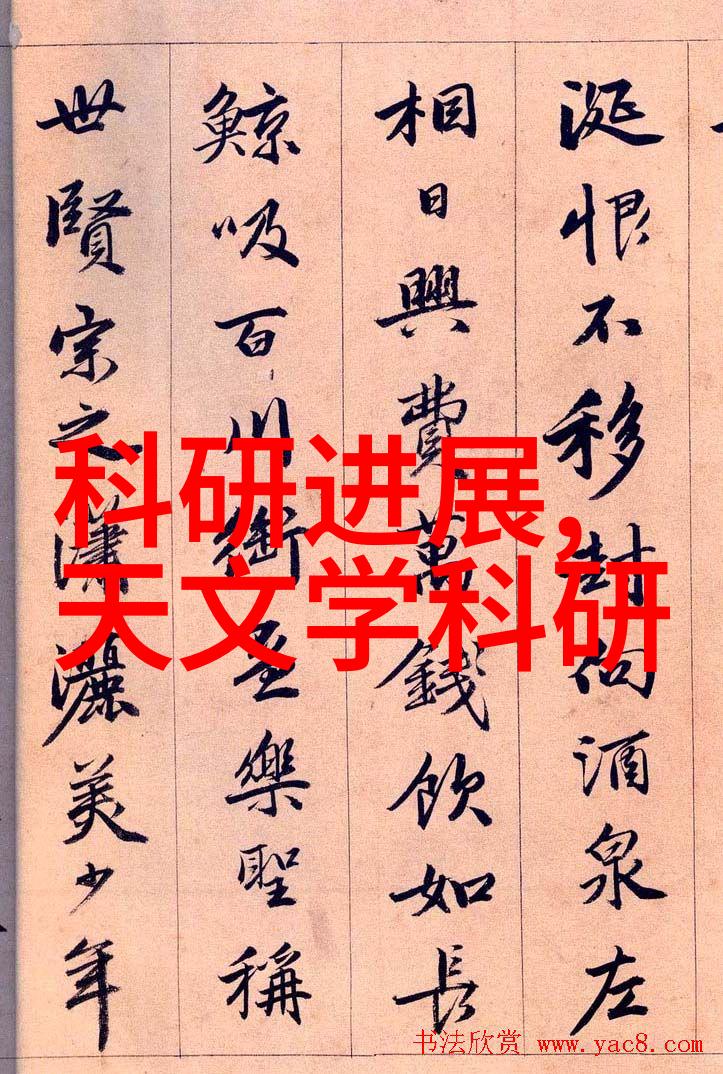 涎恨不移封向酒泉左
相日興費萬錢飲如長
鯨吸百川銜盃樂聖稱
世賢宗之瀟灑美少年
科研进展,
天文学科研
书法欣赏 www.yac8.com